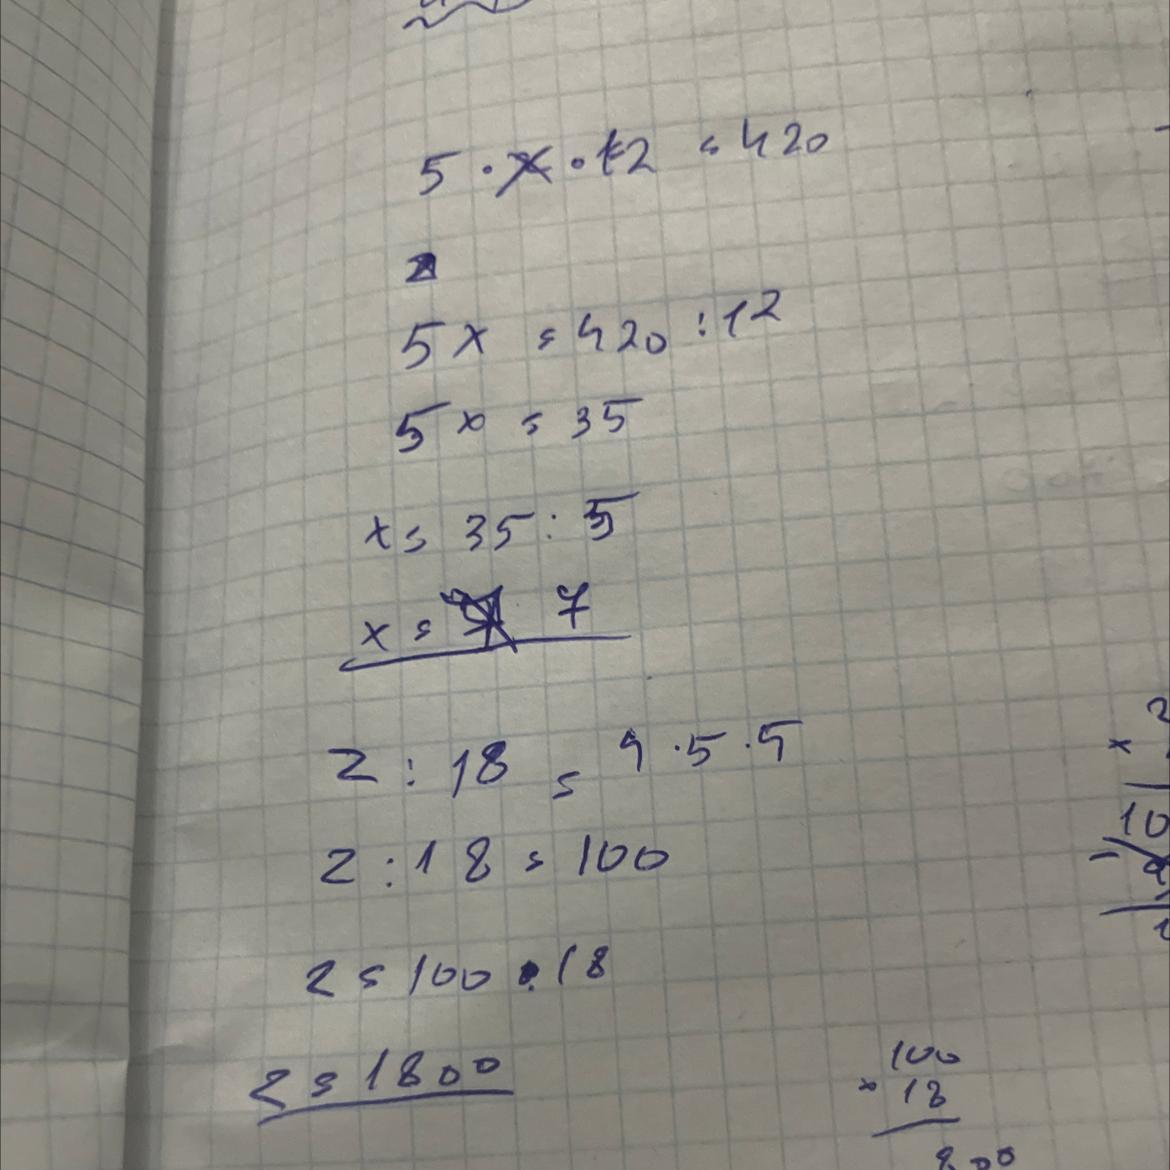 5 · x · 12 = 420
5x = 420 : 12
5x = 35
x = 35 : 5
x = 7
z : 18 = 4 · 5 · 5
z : 18 = 100
z = 100 · 18
z = 1800
100
× 18
800